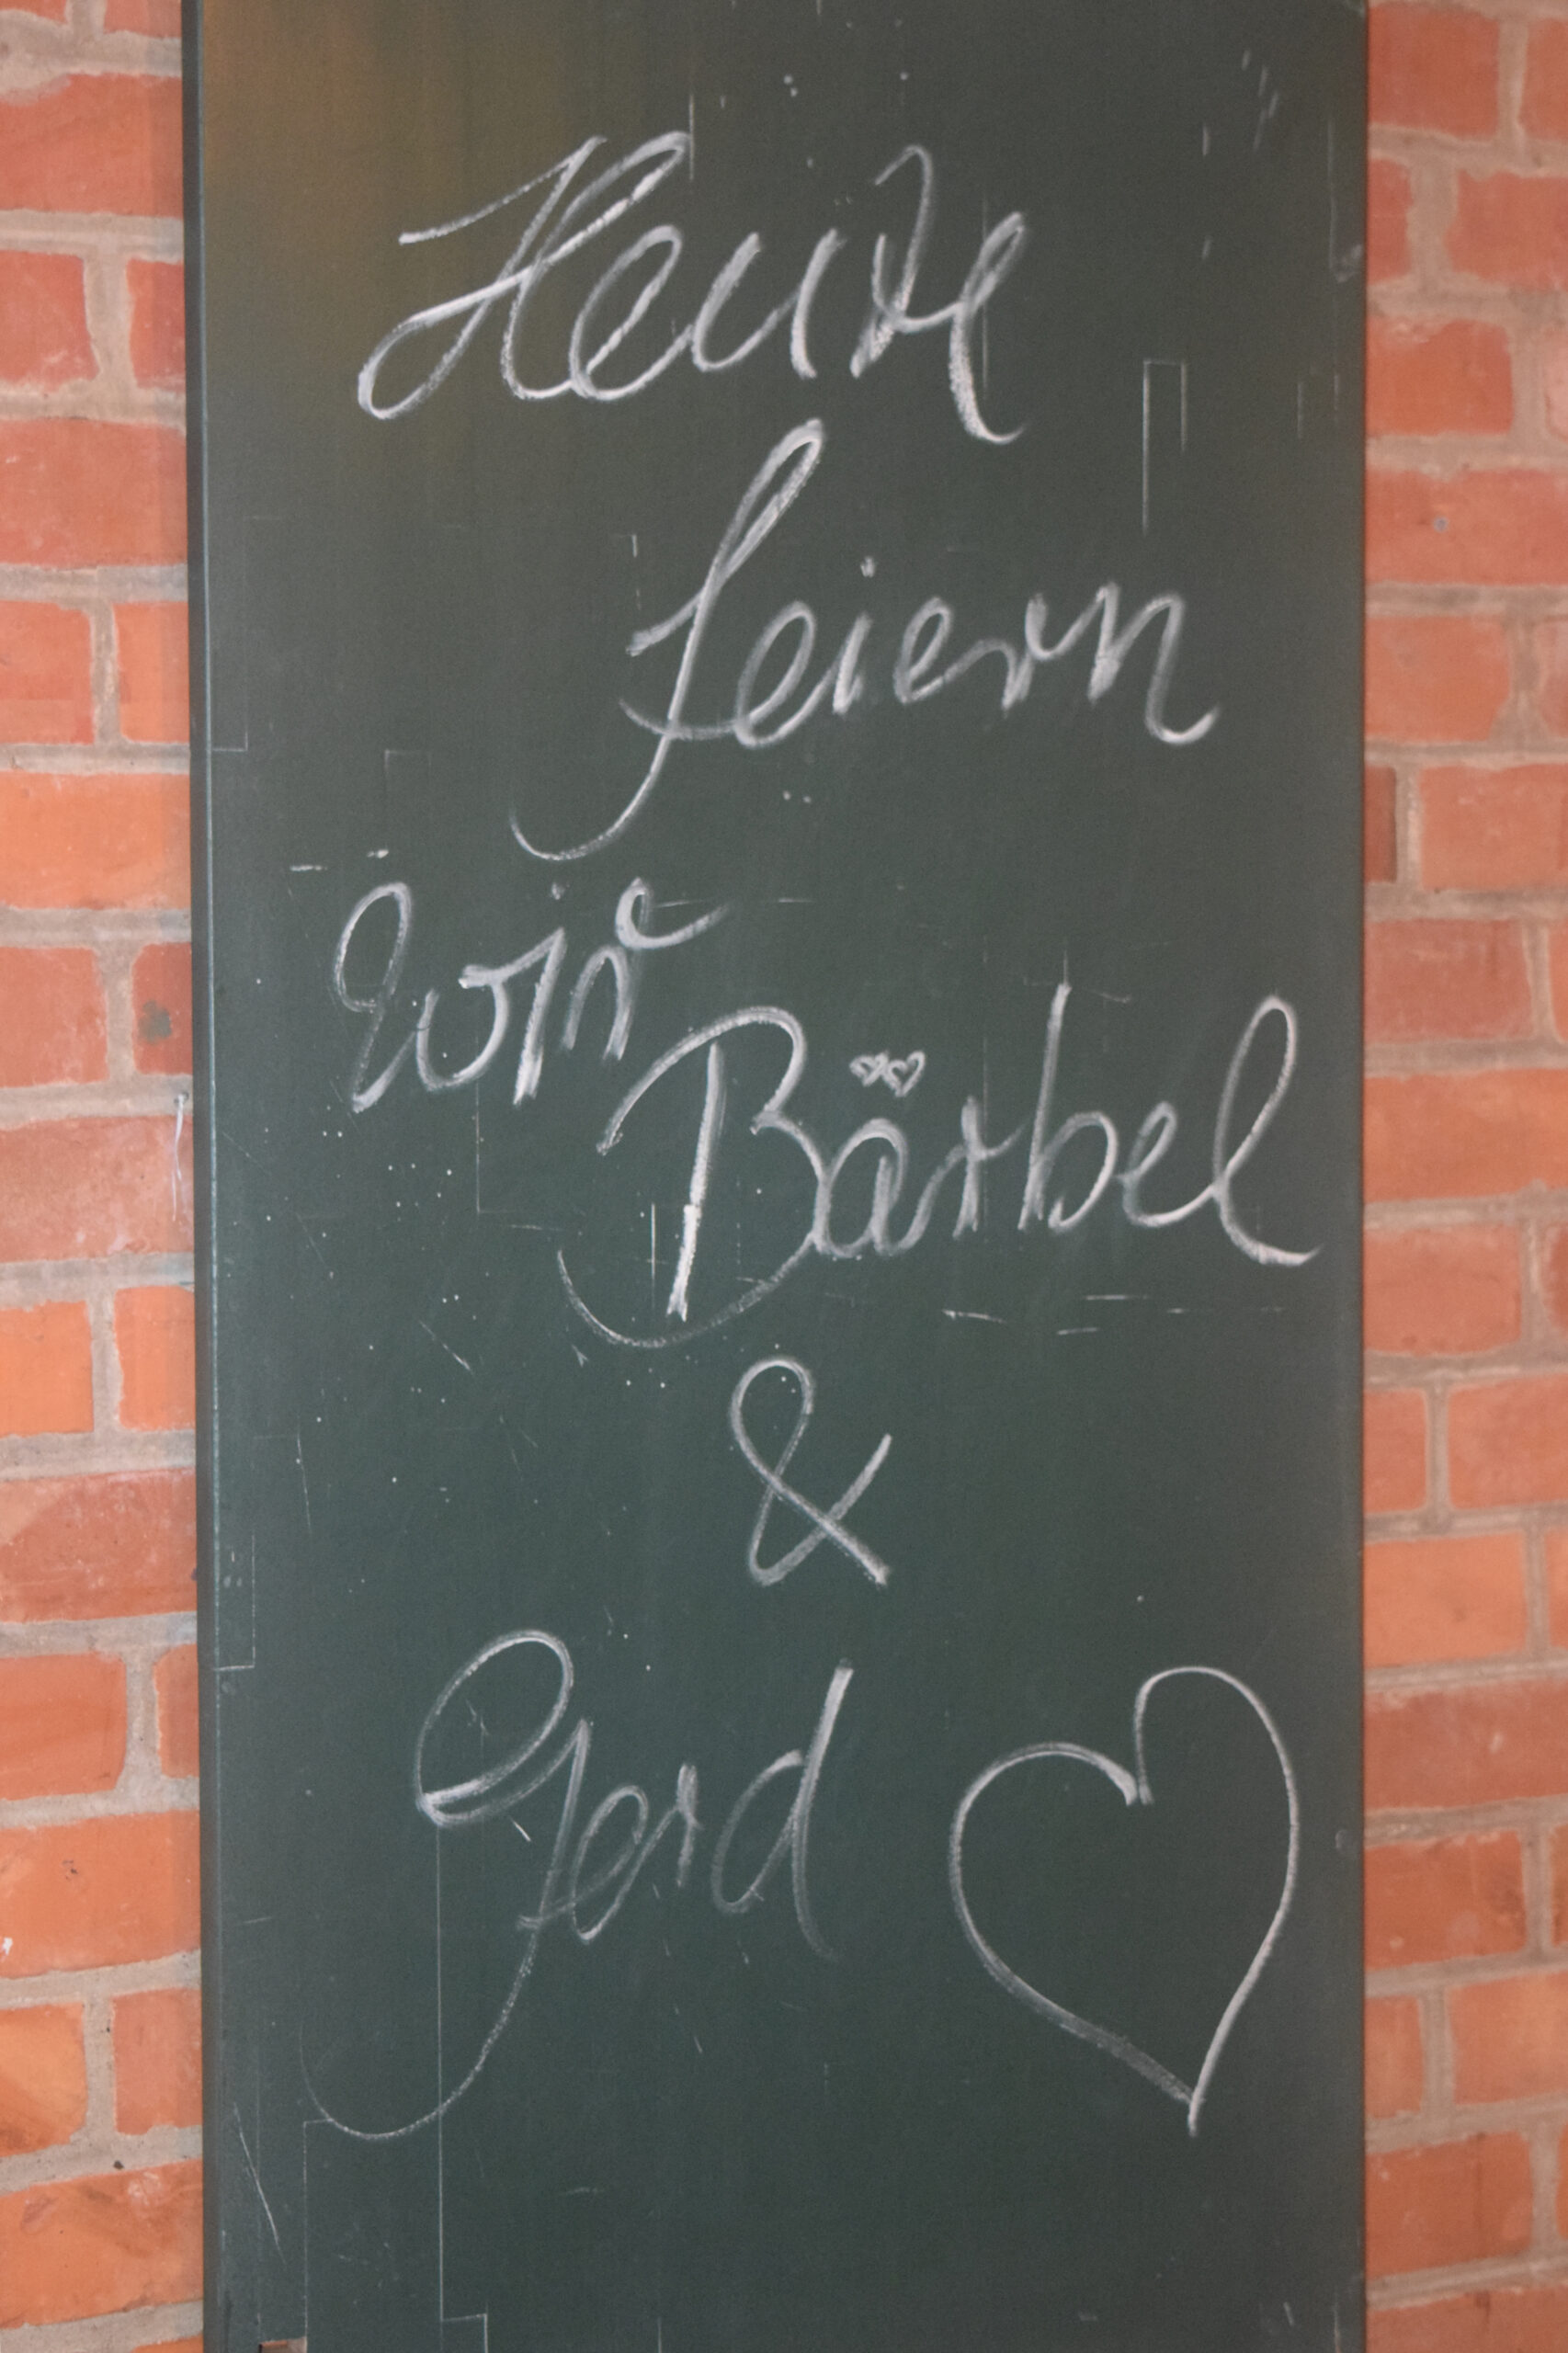 Heute
feiern
wir
Bärbel
&
Gerd